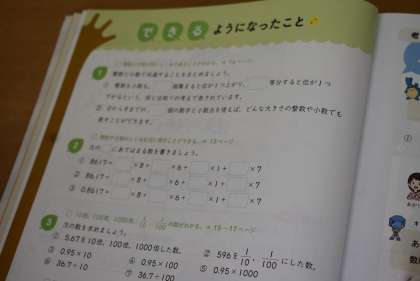 できるようになったこと
1 整数と小数で共通することをまとめましょう。
① 整数も小数も、 個集まると位が1つ上がり、 等分すると位が1つ
下がるという、同じ仕組みの考えで表されています。
② 0から9までの 個の数字と小数点を使えば、どんな大きさの整数や小数でも
表すことができます。
2 次の にあてはまる数を書きましょう。
① 8617= ×8+ ×6+ ×1+ ×7
② 86.17= ×8+ ×6+ ×1+ ×7
③ 0.8617= ×8+ ×6+ ×1+ ×7
3 10倍、100倍、1000倍、1/10、1/100の数がわかる。→15~17ページ
次の数を求めましょう。
① 5.67を10倍、100倍、1000倍した数。
② 596を1/10、1/100にした数。
③ 0.95×10
④ 0.95×100
⑤ 0.95×1000
⑥ 36.7÷10
⑦ 36.7÷100